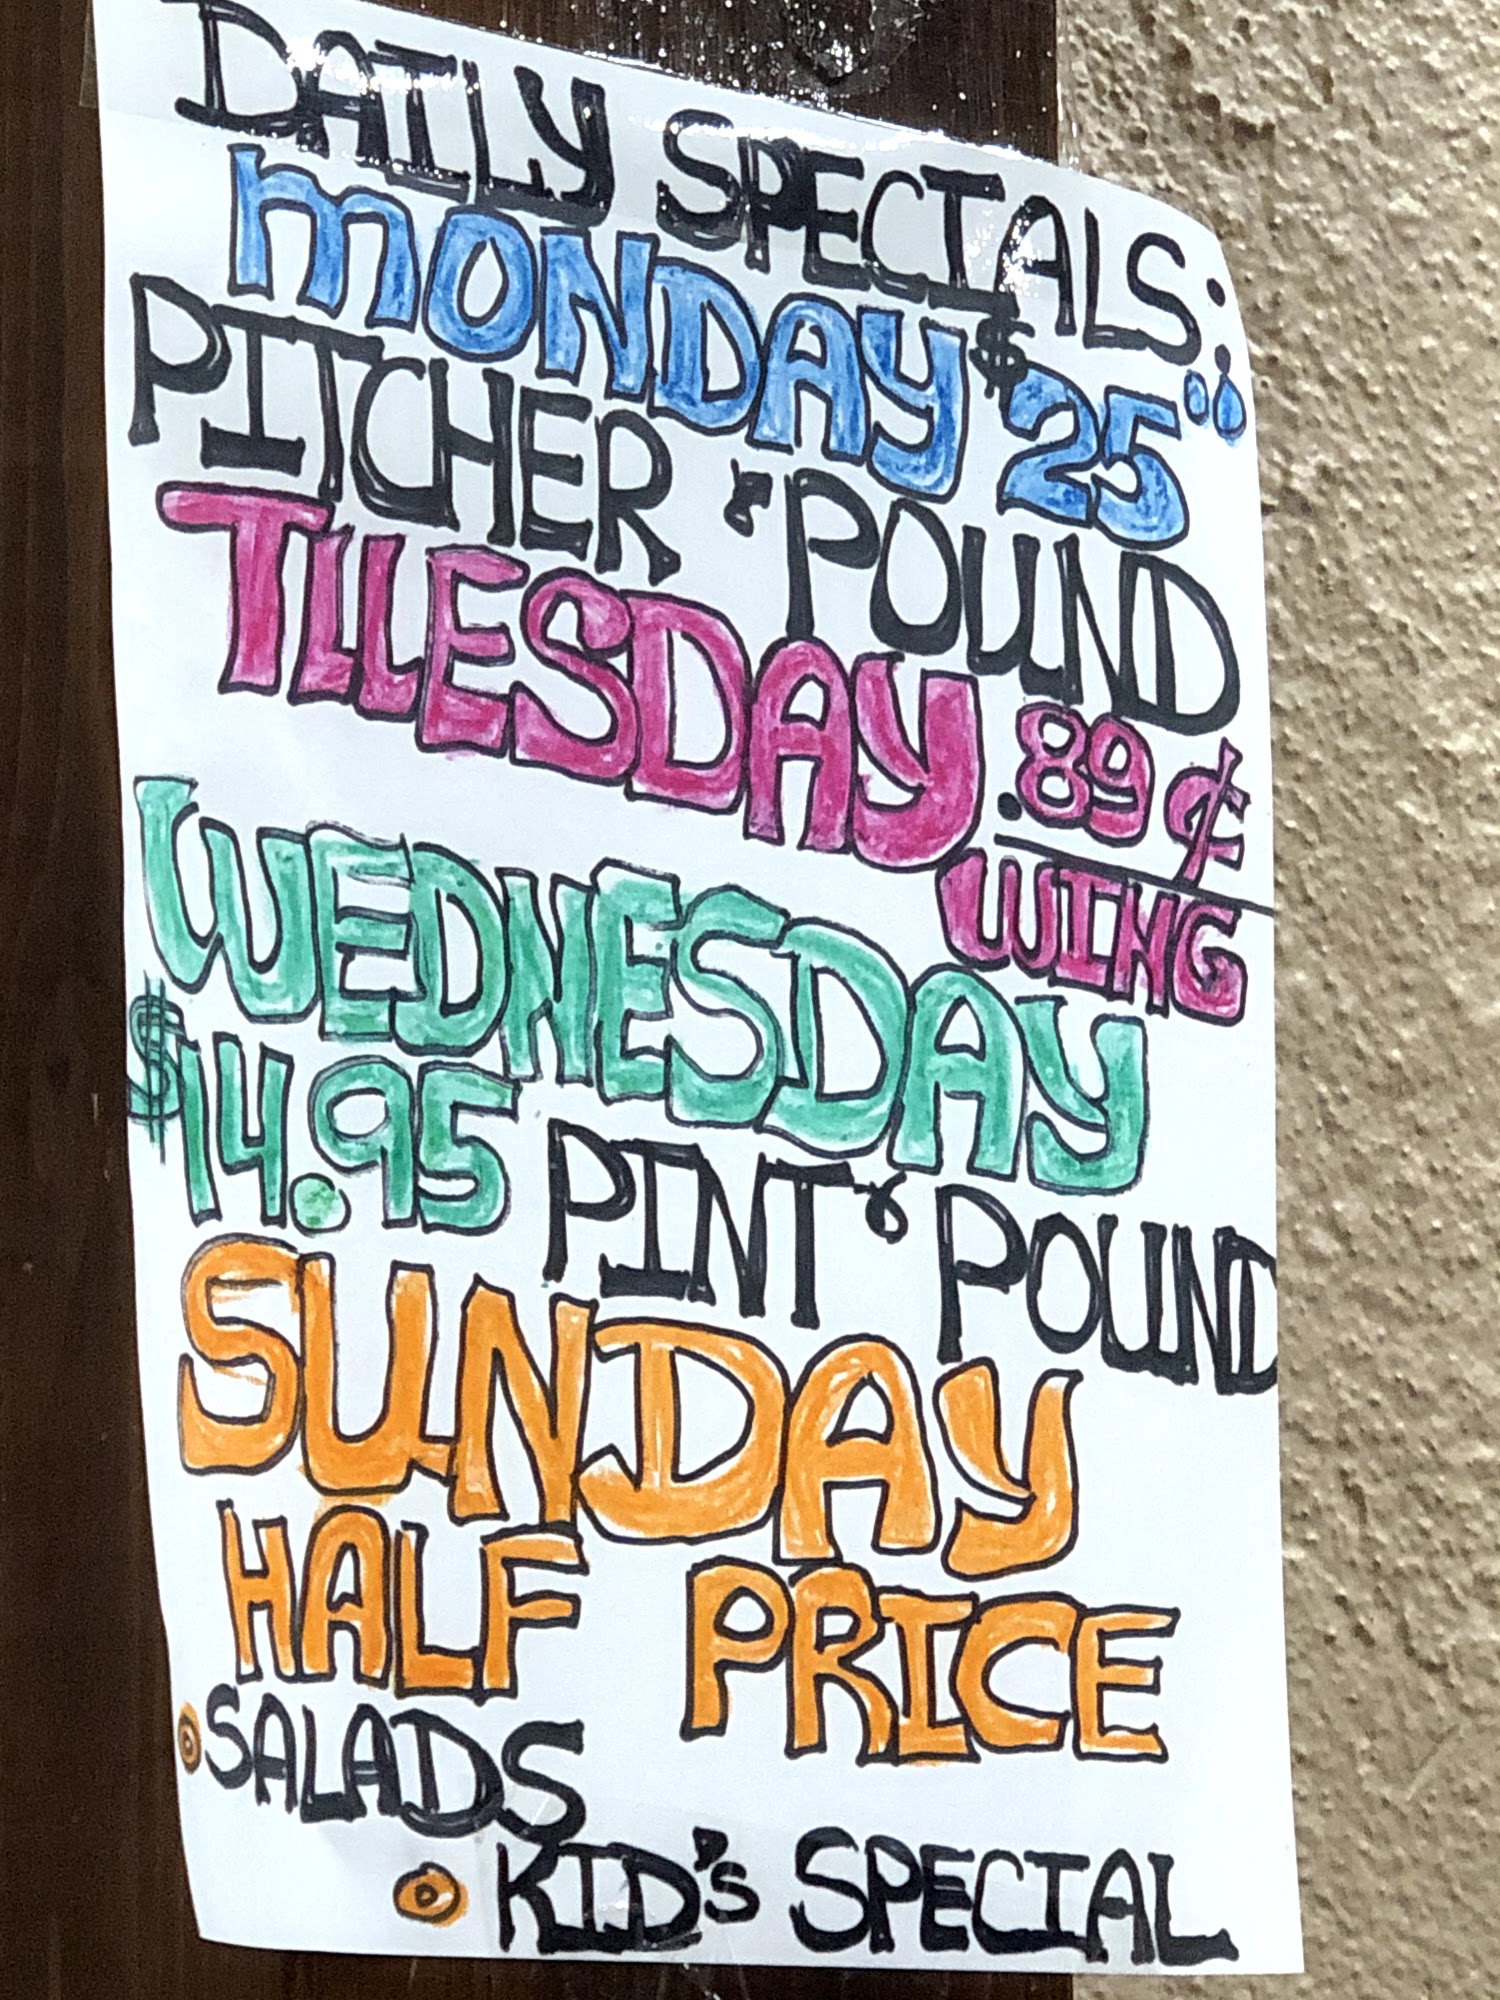 DAILY SPECIALS:
MONDAY $25.00
PITCHER & POUND
TUESDAY .89¢
WING
WEDNESDAY
$14.95 PINT & POUND
SUNDAY
HALF PRICE
SALADS
KID'S SPECIAL